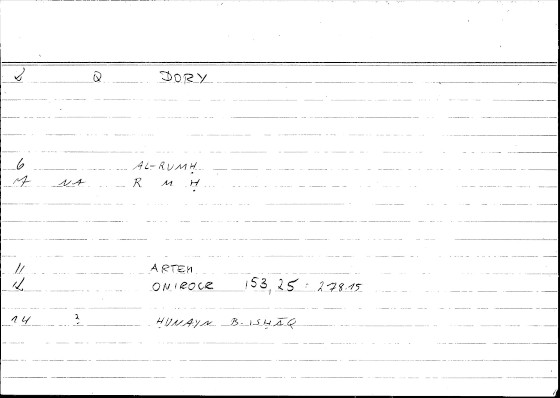 2 Q DORY
6 AL-RUMḤ
7 NA R M Ḥ
11 ARTEM
12 ONIROCR 153,25 : 278.15
14 ? ḤUNAYN B. ISḤĀQ